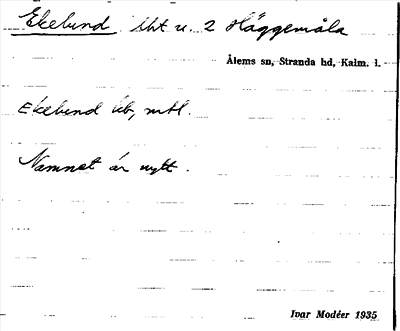 Ekelund lht u. 2 Häggemåla
Ålems sn, Stranda hd, Kalm. l.
Ekelund üb, mtl.
Namnet är nytt.
Ivar Modéer 1935